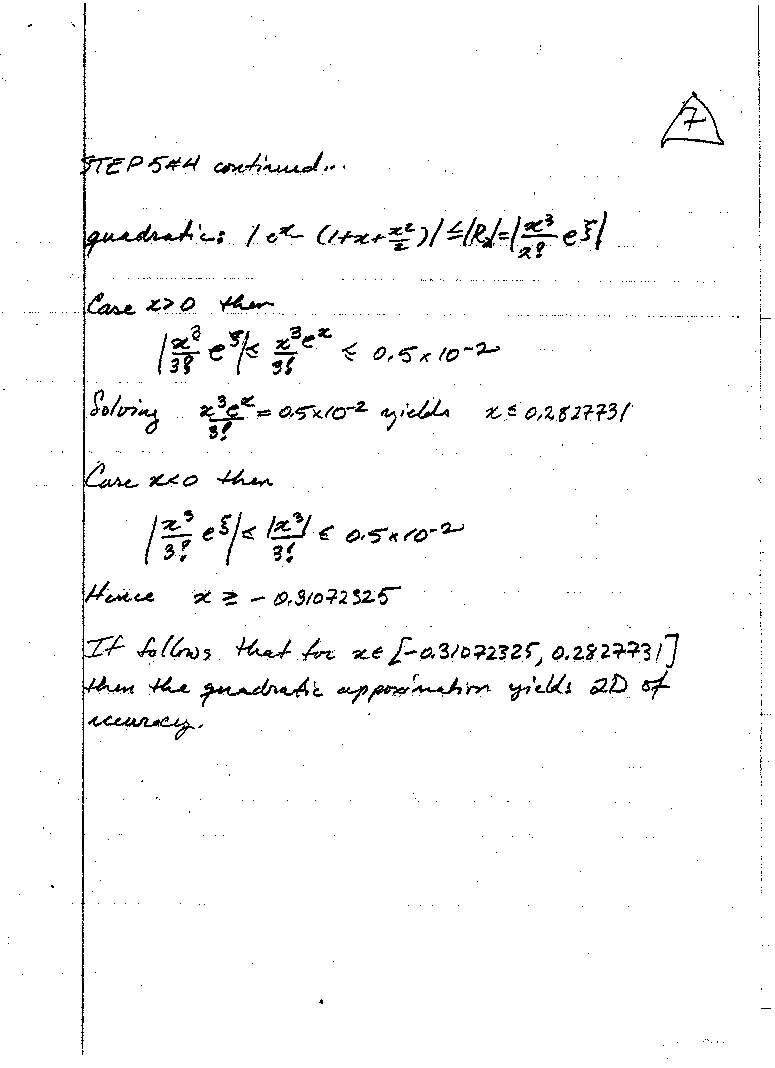 7
STEP 5#4 continued...
quadratic: |e^x - (1+x+x²/2)| ≤ |R₂| = |x³/2! e^ξ|
Case x>0 then
|x³/3! e^ξ| ≤ x³e^x/3! ≤ 0.5×10⁻²
Solving x³e^x/3! = 0.5×10⁻² yields x ≤ 0.2827731
Case x<0 then
|x³/3! e^ξ| ≤ |x³|/3! ≤ 0.5×10⁻²
Hence x ≥ -0.31072325
It follows that for x∈[-0.31072325, 0.2827731]
then the quadratic approximation yields 2D of
accuracy.